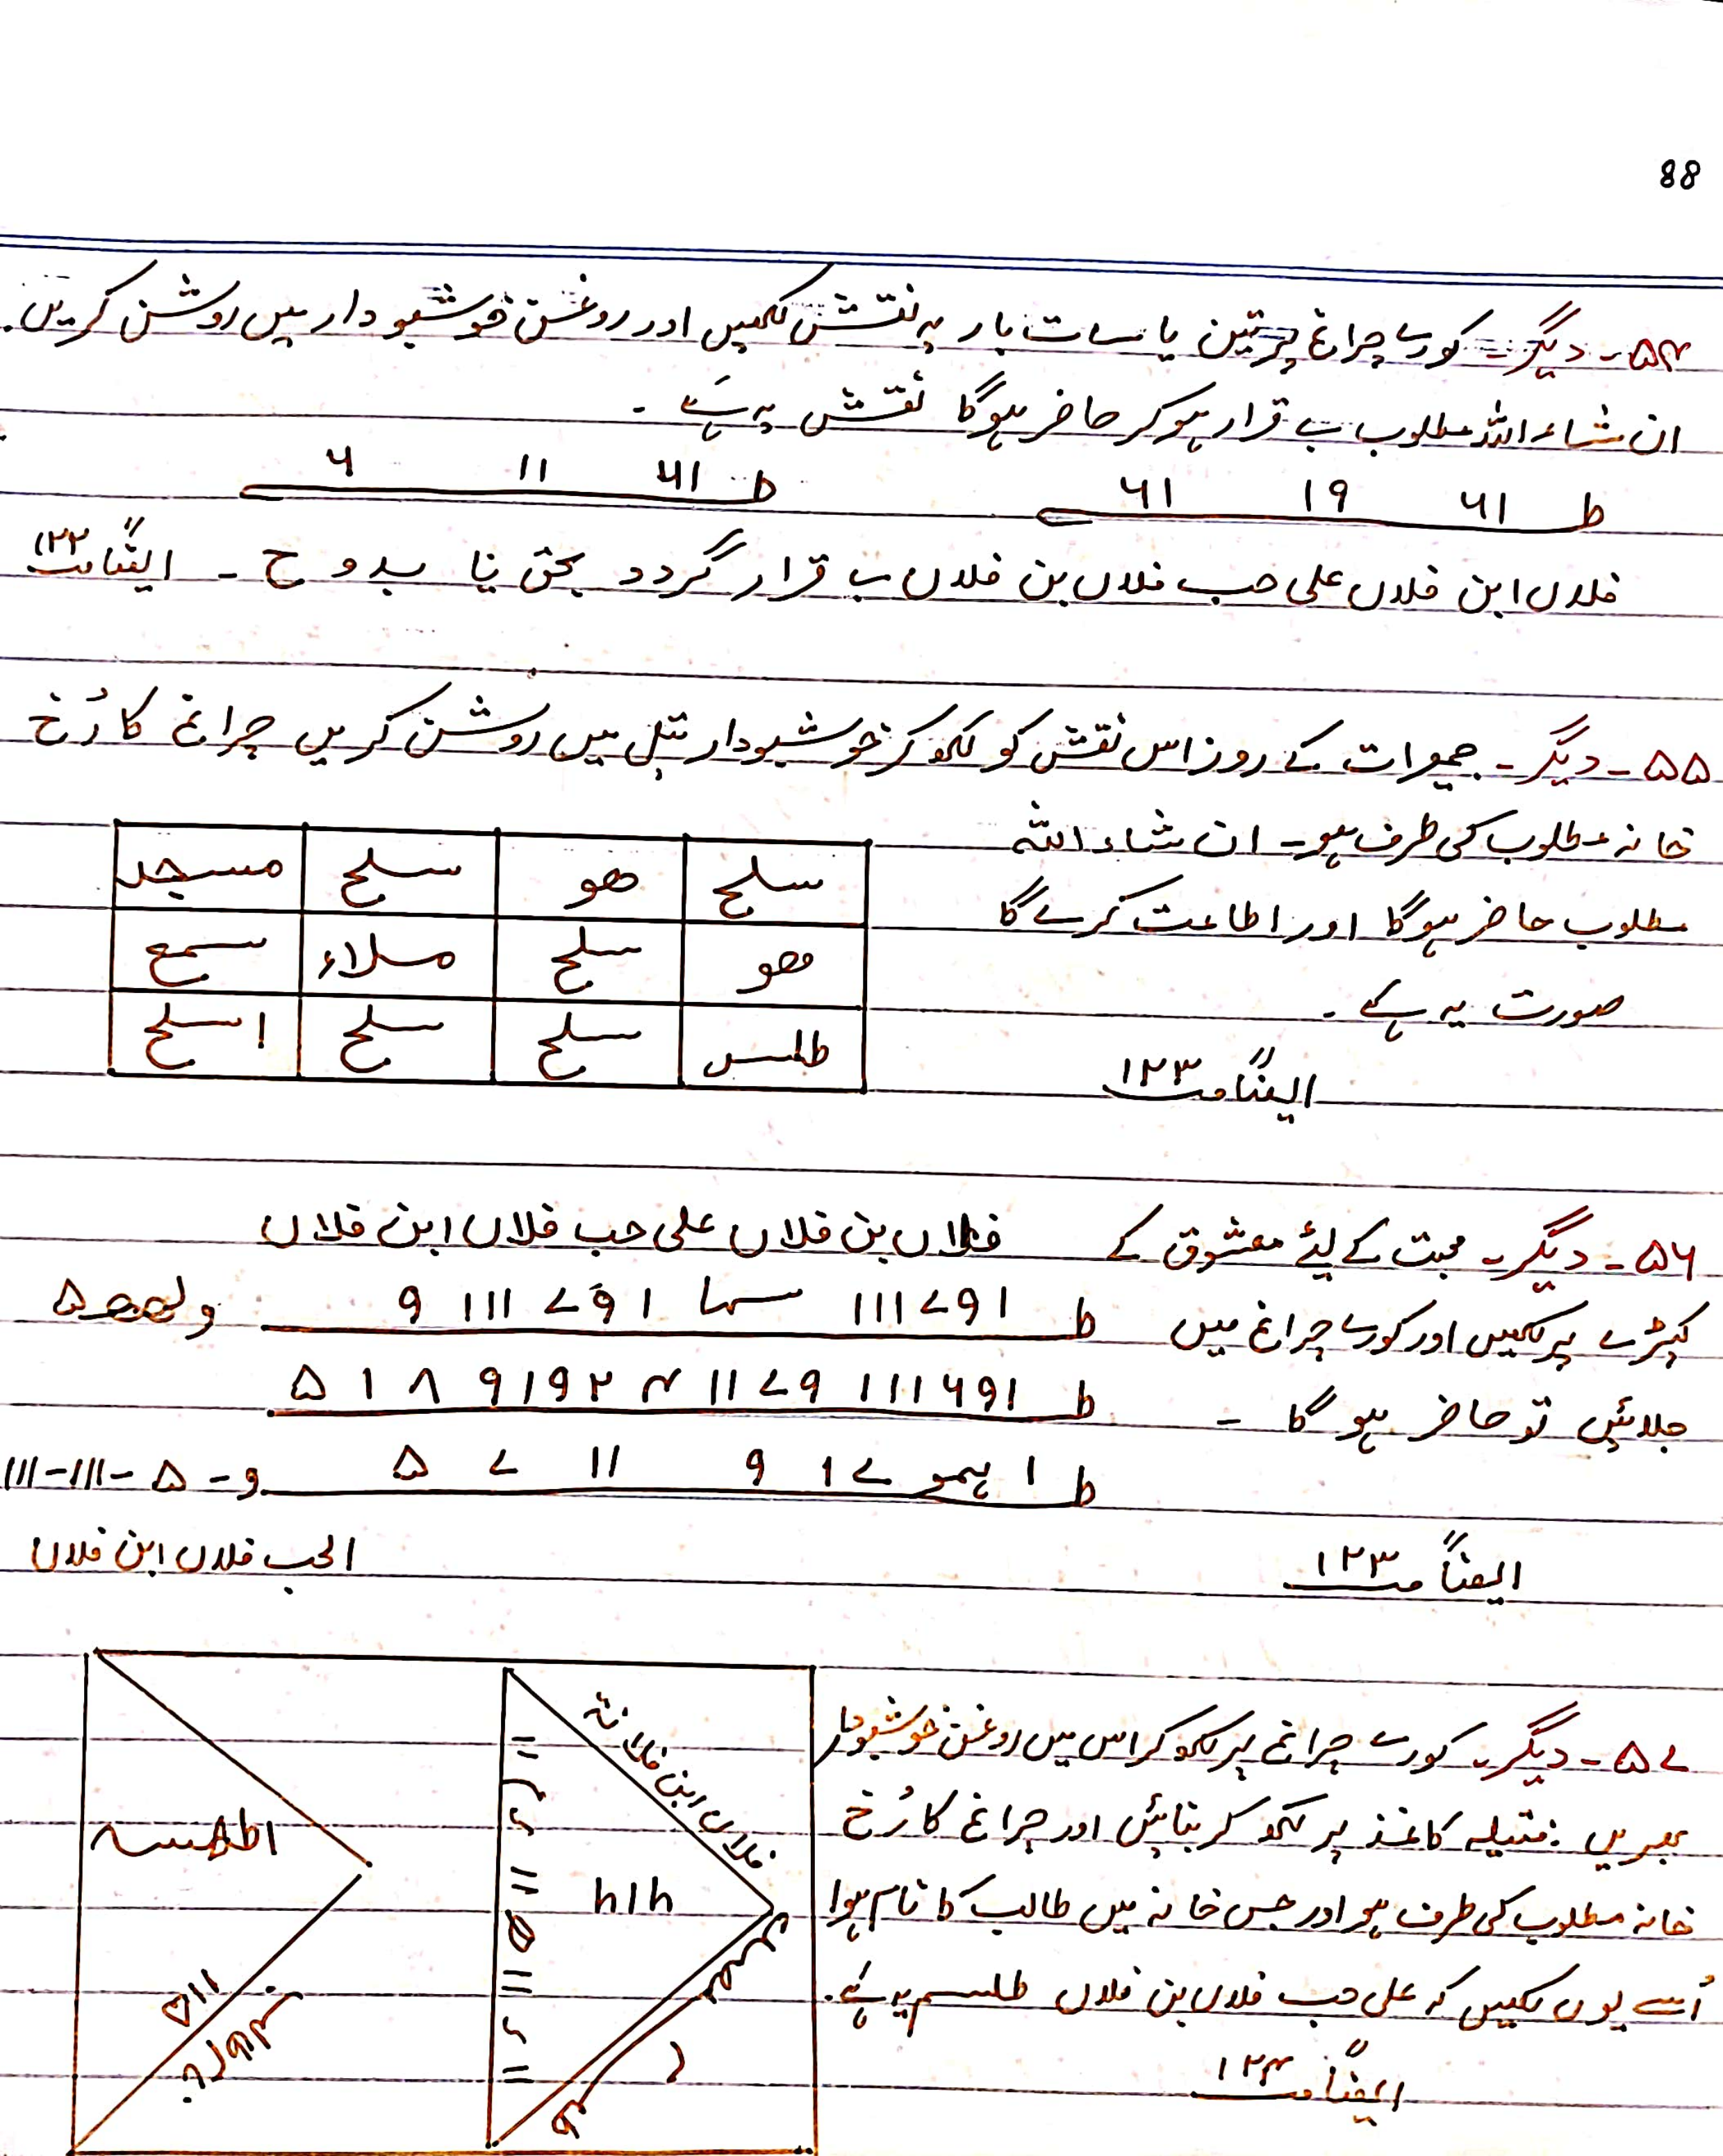 88
۵۴۔ دیگر۔ کورے چراغ پر تین یا سات بار یہ نقش لکھیں اور روغن خوشبو دار میں روشن کریں۔
ان شاء اللہ مطلوب بے قرار ہو کر حاضر ہوگا نقش یہ ہے۔
ط ۶۱ ۱۹ ۶۱ ط ۶۱ ۱۱ ۶
فلاں ابن فلاں علی حب فلاں بن فلاں بے قرار گردد بحق یا بدوح ۔ ایضاً ص ۱۲۲
۵۵۔ دیگر۔ جمعرات کے روز اس نقش کو لکھ کر خوشبودار تیل میں روشن کریں چراغ کا رُخ
خانہ مطلوب کی طرف ہو۔ ان شاء اللہ
مطلوب حاضر ہوگا اور اطاعت کرے گا
صورت یہ ہے ۔
ایضاً ص ۱۲۳
سلح ھو سلح مسجد
ھو سلح ملاء سمع
طلس سلح سلح ا سلح
۵۶۔ دیگر۔ محبت کے لیٔے معشوق کے
کپڑے پر لکھیں اور کورے چراغ میں
جلائیں تو حاضر ہو گا ۔
ایضاً ص ۱۲۳
فلاں بن فلاں علی حب فلاں ابن فلاں
ط ۱۹۷۱۱۱ سہا ۱۹۷ ۱۱۱ ۹
ط ۱۹۶۱۱۱ ۹۷۱۱ ۴ ۲۹۱۹ ۸ ۱ ۵
ط ۱ ہمو ۷۱ ۹ ۱۱ ۷ ۵ و- ۵ -۱۱۱-۱۱۱
الحب فلاں ابن فلاں
۵۷۔ دیگر۔ کورے چراغ پر لکھ کر اس میں روغن خوشبودار
بھریں ؛ فتیلہ کاغذ پر لکھ کر بنائیں اور چراغ کا رُخ
خانہ مطلوب کی طرف ہو اور جس خانہ میں طالب کا نام ہوا
اُسے یوں لکھیں کہ علی حب فلاں بن فلاں طلسم یہ ہے۔
ایضاً ص ۱۲۴
فلاں ابن فلانۃ
۶۱۶
۱۱۵